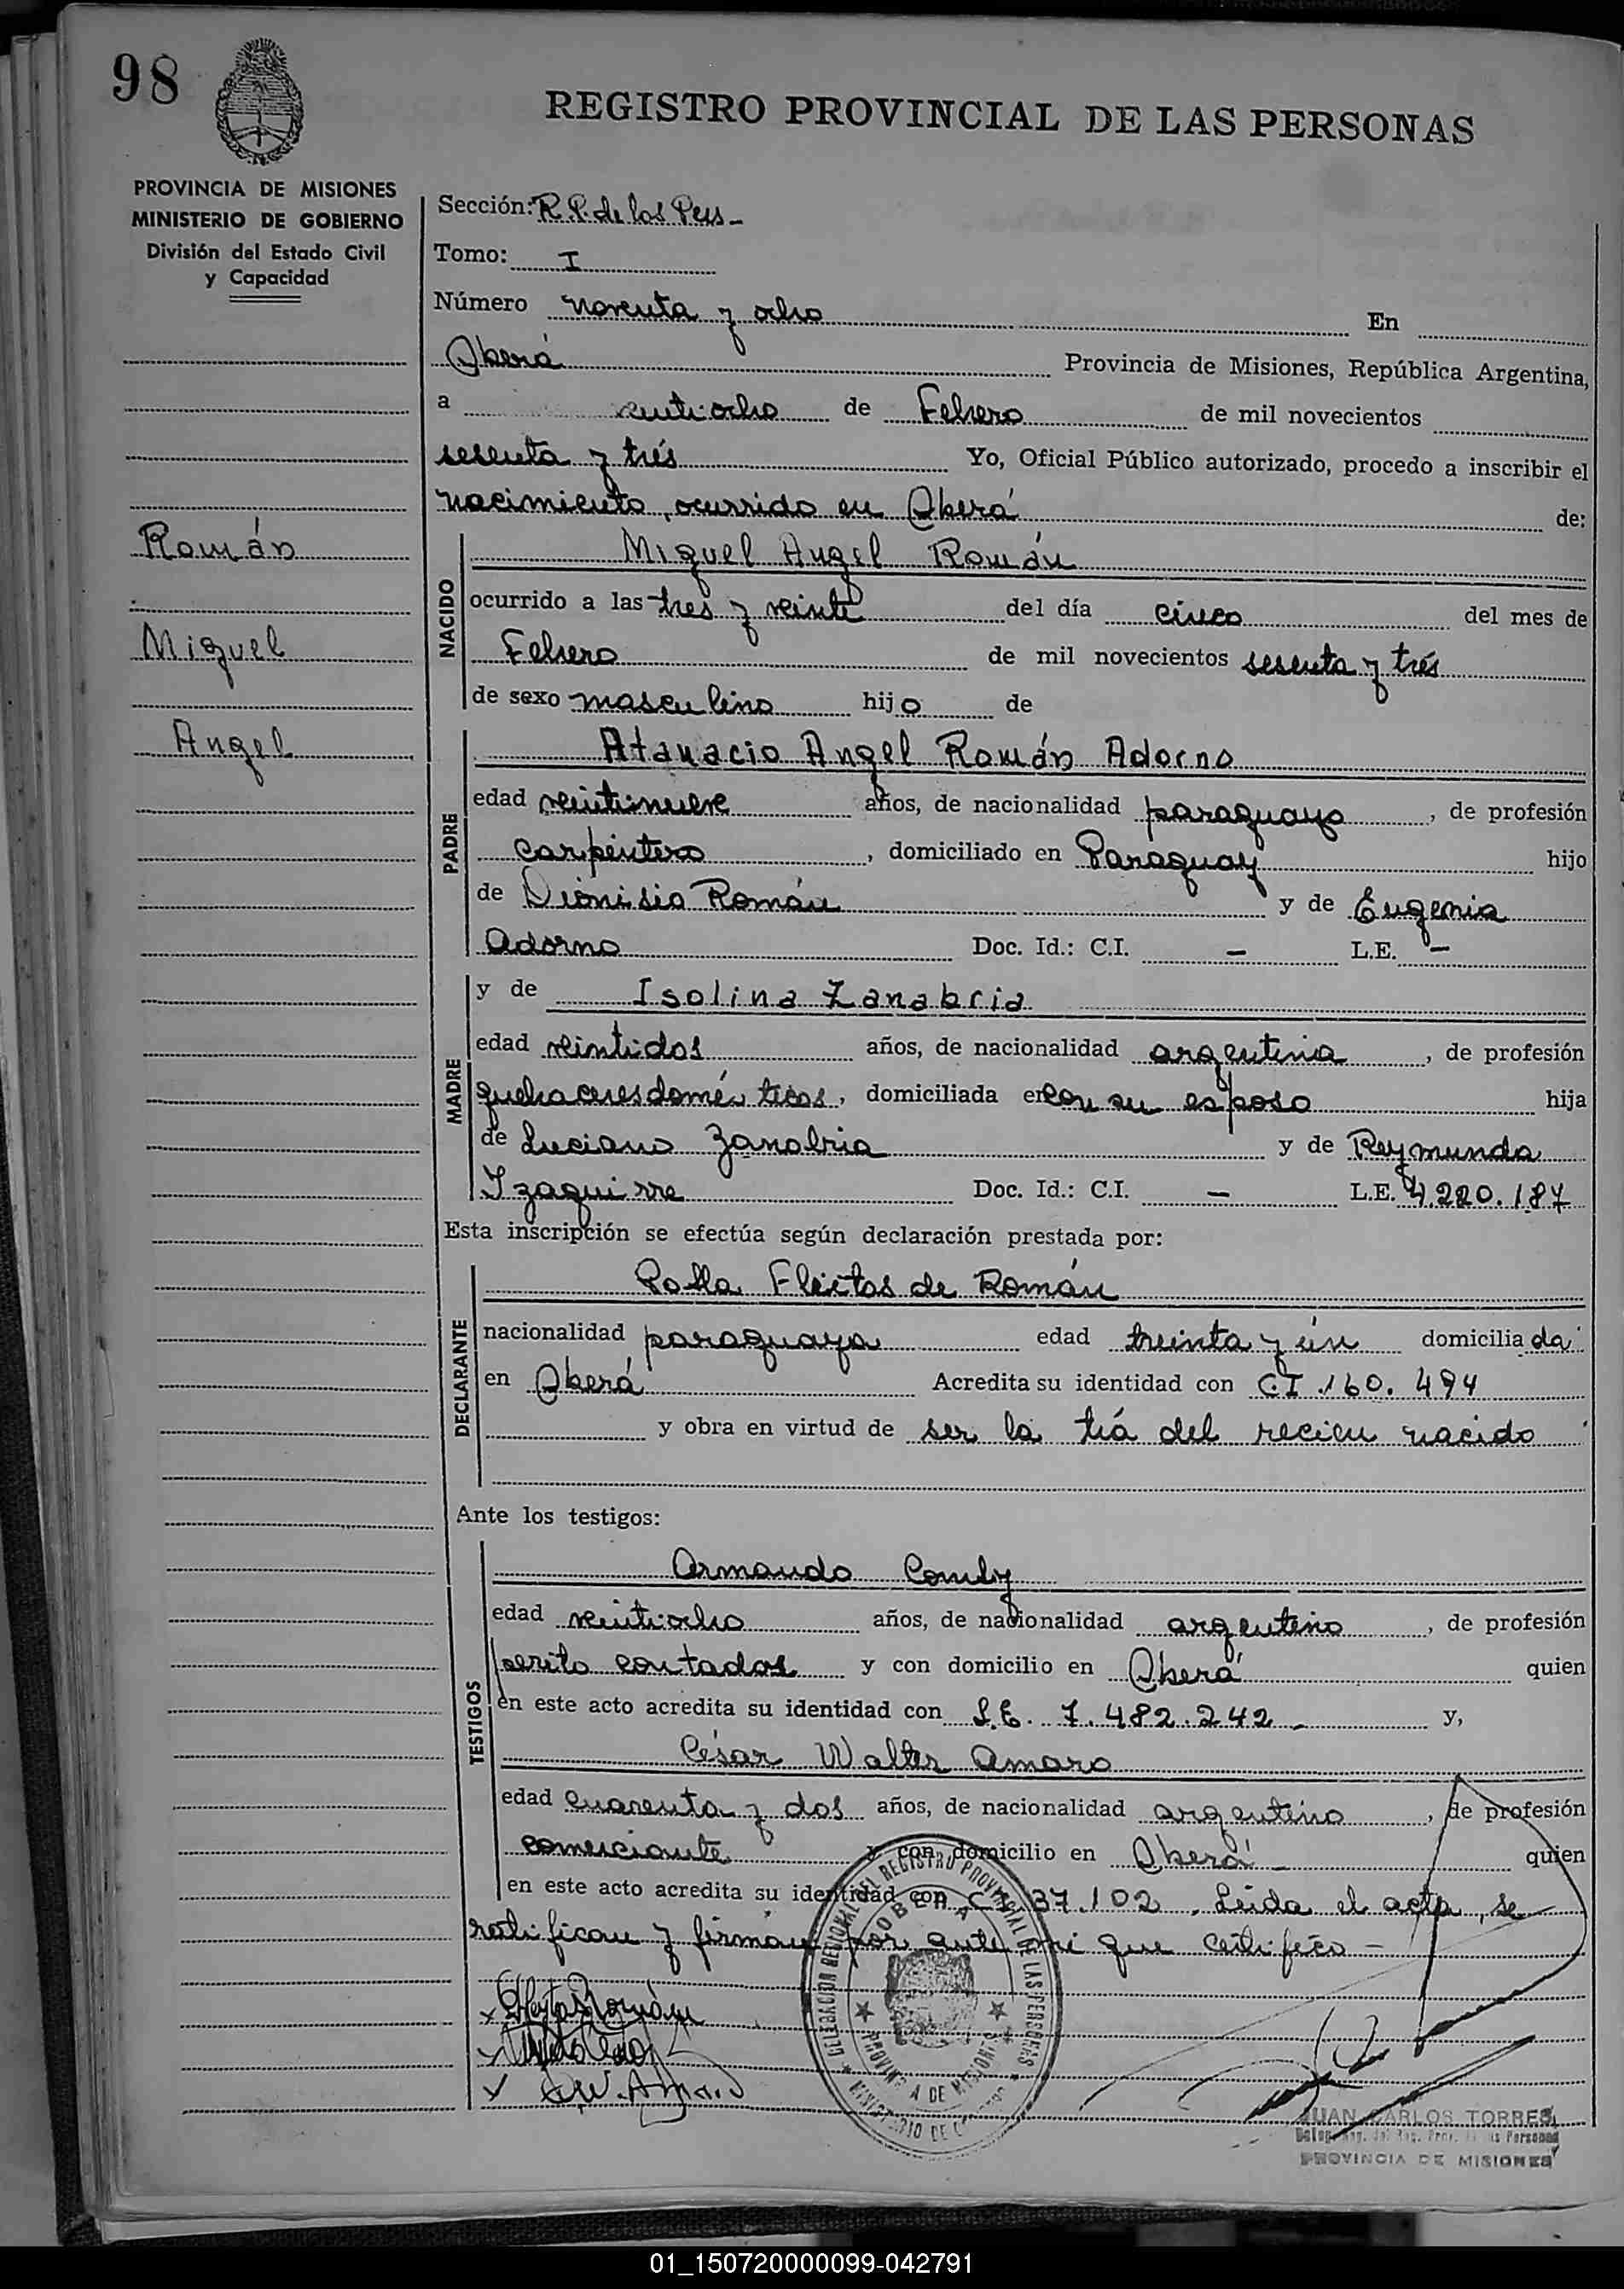 98
REGISTRO PROVINCIAL DE LAS PERSONAS
PROVINCIA DE MISIONES
MINISTERIO DE GOBIERNO
División del Estado Civil
y Capacidad
Román
Miguel
Angel
Sección: R. P. de las Pers -
Tomo: I
Número noventa y ocho En
Oberá Provincia de Misiones, República Argentina,
a veintiocho de Febrero de mil novecientos
sesenta y trés Yo, Oficial Público autorizado, procedo a inscribir el
nacimiento, ocurrido en Oberá de:
NACIDO
Miguel Angel Román
ocurrido a las tres y veinte del día cinco del mes de
Febrero de mil novecientos sesenta y trés
de sexo masculino hijo de
PADRE
Atanacio Angel Román Adorno
edad veintinueve años, de nacionalidad paraguayo, de profesión
carpintero, domiciliado en Paraguay hijo
de Dionisio Román y de Eugenia
Adorno Doc. Id.: C.I. - L.E. -
MADRE
y de Isolina Zanabria
edad veintidos años, de nacionalidad argentina, de profesión
quehaceres domésticos, domiciliada en con su esposo hija
de Luciano Zanabria y de Reymunda
Yzaguirre Doc. Id.: C.I. - L.E. 4.220.187
Esta inscripción se efectúa según declaración prestada por:
DECLARANTE
Fleitas de Román
nacionalidad paraguaya edad treinta y ún domiciliada
en Oberá Acredita su identidad con C.I. 160.494
y obra en virtud de ser la tiá del recien nacido
Ante los testigos:
TESTIGOS
Armando
edad veintiocho años, de nacionalidad argentino, de profesión
perito contador y con domicilio en Oberá quien
en este acto acredita su identidad con L.E. 7.482.242 - y,
César Walter Amaro
edad cuarenta y dos años, de nacionalidad argentino, de profesión
comerciante y con domicilio en Oberá - quien
en este acto acredita su identidad con C.I. 37.102. Leida el acta, se
ratifican y firman por ante mi que certifico -
DELEGACION REGIONAL DEL REGISTRO PROVINCIAL DE LAS PERSONAS
OBERA
PROVINCIA DE MISIONES
MINISTERIO DE GOBIERNO
JUAN CARLOS TORRES
PROVINCIA DE MISIONES
01_150720000099-042791